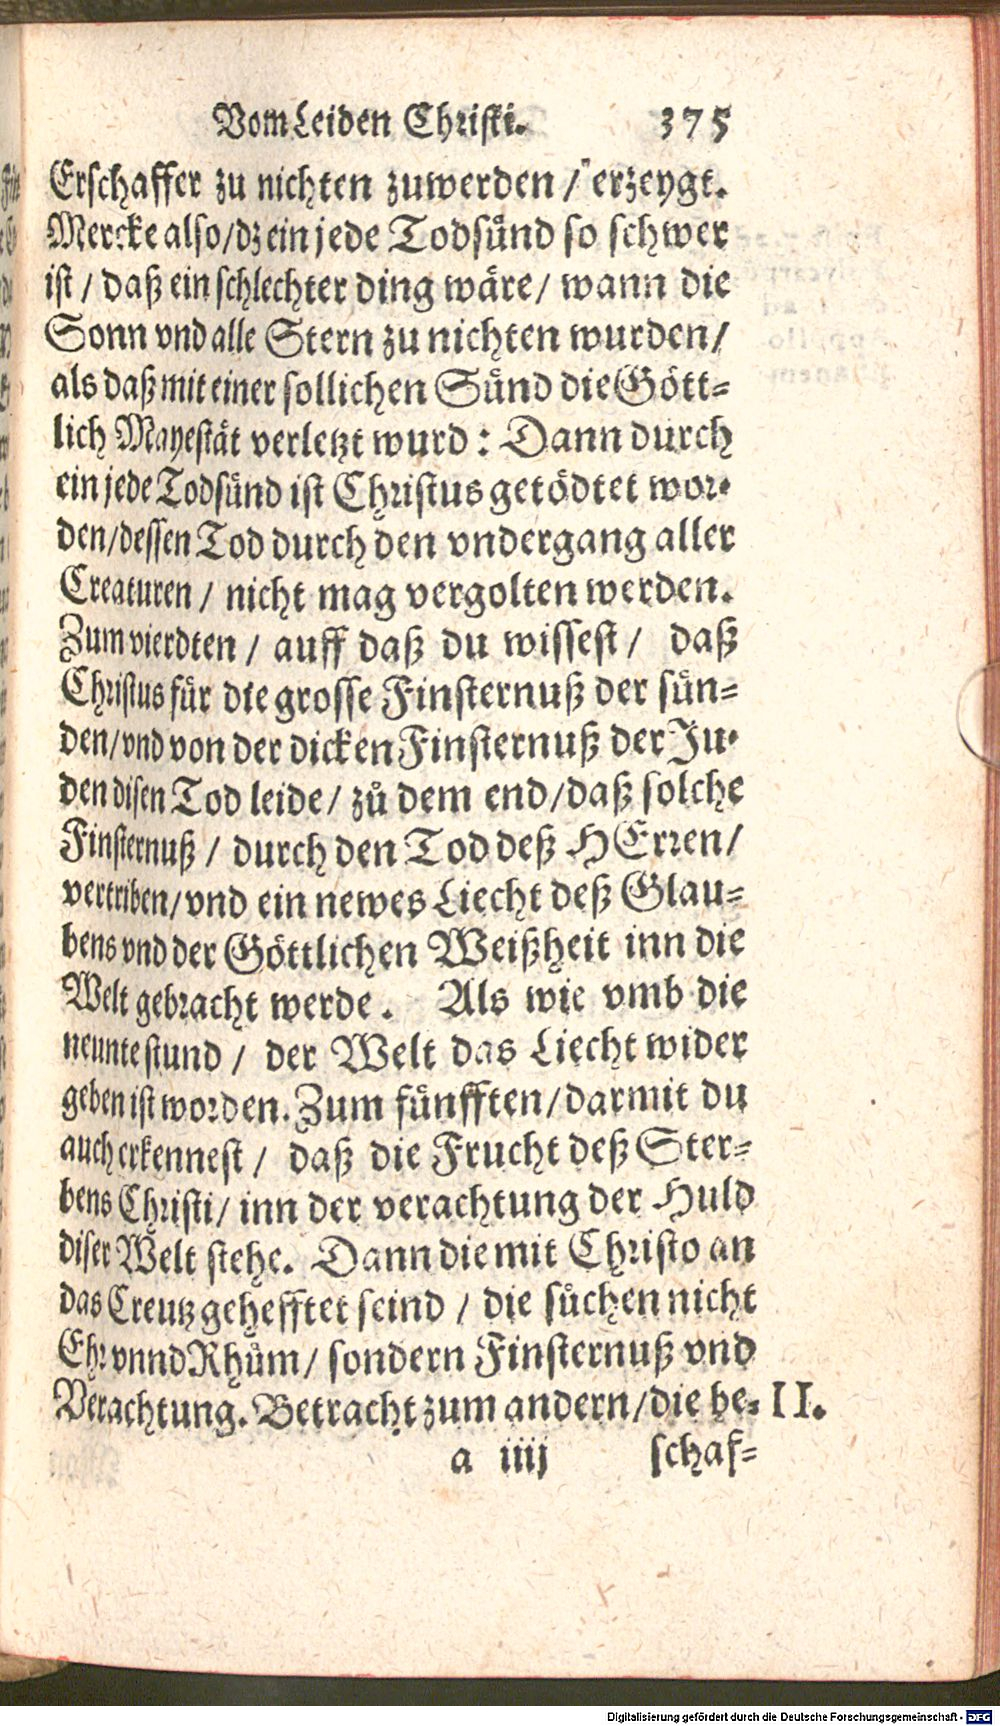 Vom Leiden Christi. 375
Erschaffer zu nichten zuwerden / erzeygt.
Mercke also/dz ein jede Todsůnd so schwer
ist / daß ein schlechter ding wäre/ wann die
Sonn vnd alle Stern zu nichten wurden/
als daß mit einer sollichen Sůnd die Gött-
lich Mayestät verletzt wurd : Dann durch
ein jede Todsůnd ist Christus getödtet wor-
den/dessen Tod durch den vndergang aller
Creaturen / nicht mag vergolten werden.
Zum vierdten / auff daß du wissest / daß
Christus fůr die grosse Finsternuß der sůn-
den/vnd von der dicken Finsternuß der Ju-
den disen Tod leide/ zů dem end/daß solche
Finsternuß / durch den Tod deß HErren/
vertriben/vnd ein newes Liecht deß Glau-
bens vnd der Göttlichen Weißheit inn die
Welt gebracht werde. Als wie vmb die
neunte stund / der Welt das Liecht wider
geben ist worden. Zum fůnfften/darmit du
auch erkennest / daß die Frucht deß Ster-
bens Christi/ inn der verachtung der Huld
diser Welt stehe. Dann die mit Christo an
das Creutz gehefftet seind / die sůchen nicht
Ehr vnnd Rhům/ sondern Finsternuß vnd
Verachtung. Betracht zum andern/die be- II.
a iiij schaf-
Digitalisierung gefördert durch die Deutsche Forschungsgemeinschaft - DFG